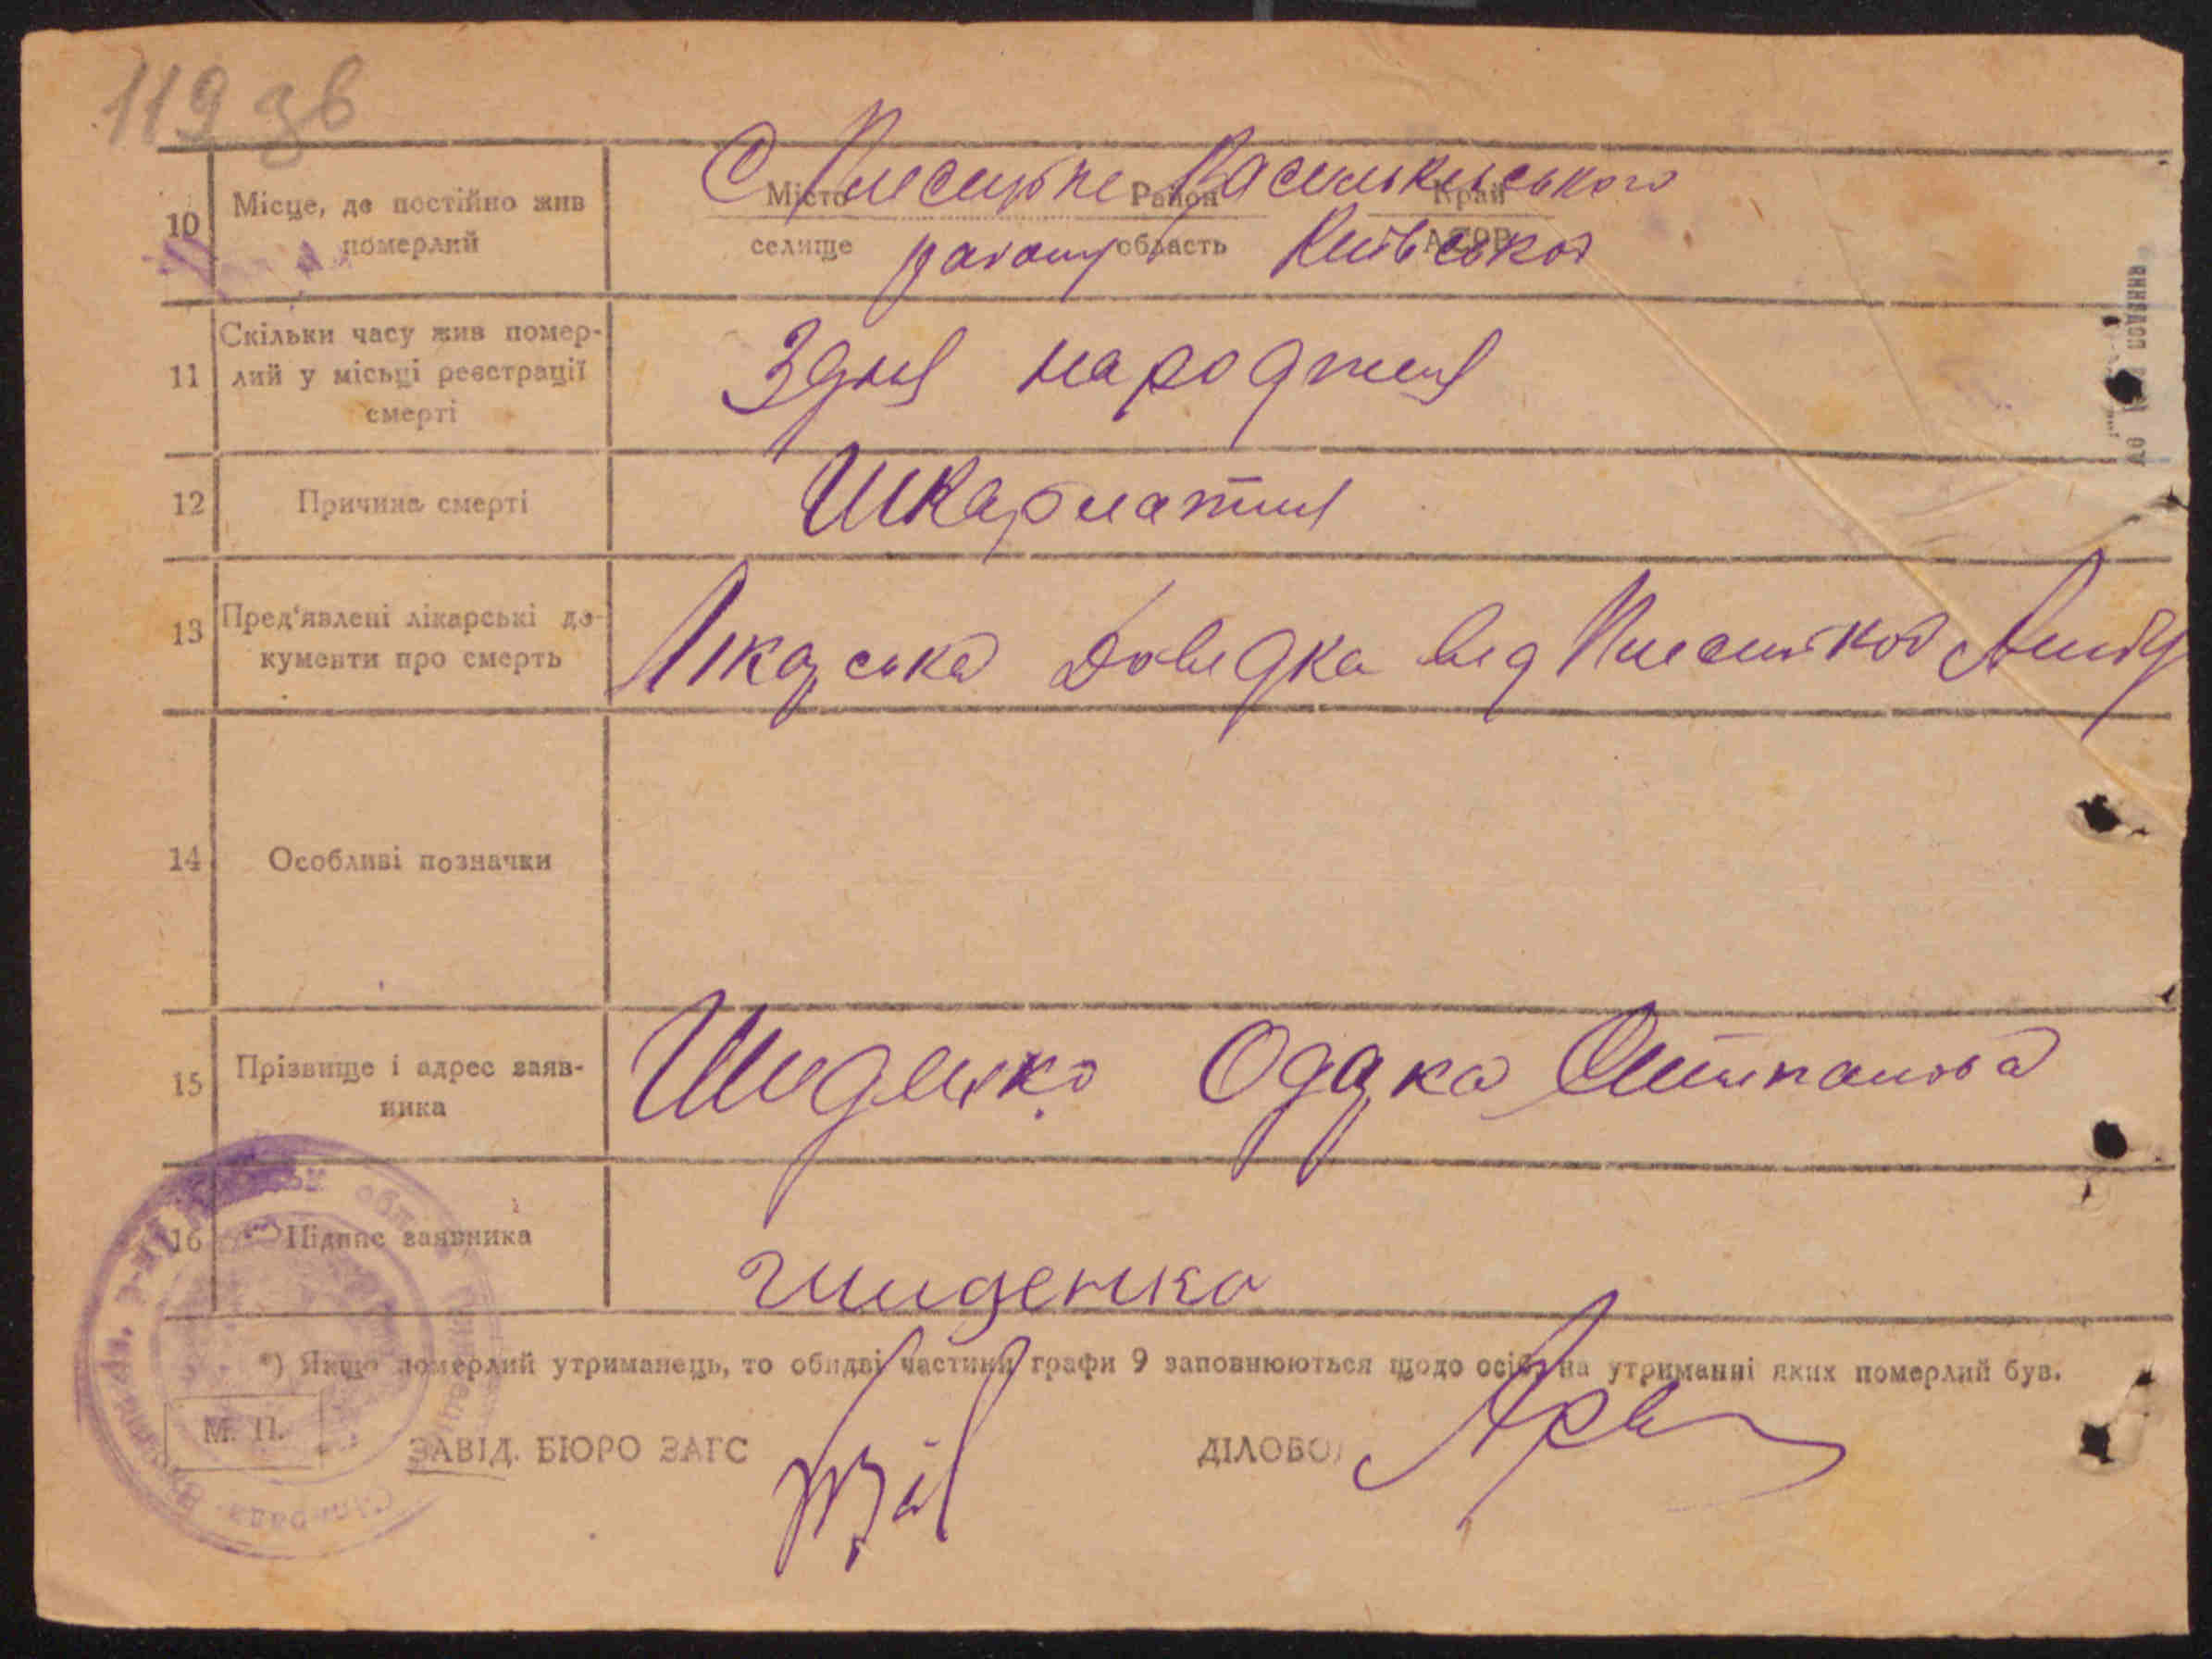 119 зв
10 Місце, де постійно жив померлий
С Плесецьке Васильківського
Місто Район Край
селище область АСРР
району Київської
11 Скільки часу жив помер-
лий у місьці реєстрації
смерті
З дня народженя
12 Причина смерті
Шкарлатия
13 Пред'явлені лікарські до-
кументи про смерть
Лікарська Доведка від Плесецької
14 Особливі позначки
15 Прізвище і адрес заяв-
ника
Шиденко Одарка
16 Підпис заявника
шиденко
*) Якщо померлий утриманець, то обидві частини графи 9 заповнюються щодо осіб, на утриманні яких померлий був.
М. П.
ЗАВІД. БЮРО ЗАГС ДІЛОВОД